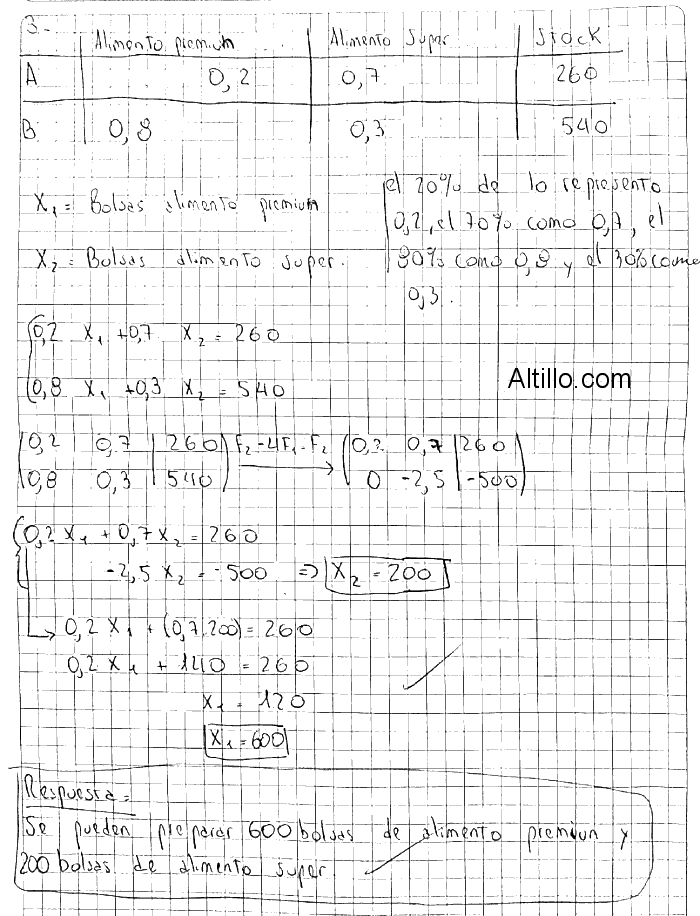 3-
Alimento premium Alimento Super Stock
A 0,2 0,7 260
B 0,8 0,3 540
X₁ = Bolsas alimento premium
X₂ = Bolsas alimento super.
el 20% de lo represento
0,2, el 70% como 0,7, el
80% como 0,8 y el 30% como
0,3.
0,2 X₁ + 0,7 X₂ = 260
0,8 X₁ + 0,3 X₂ = 540
Altillo.com
0,2 0,7 | 260 F₂ - 4F₁ → F₂ 0,2 0,7 | 260
0,8 0,3 | 540 0 -2,5 | -500
0,2 X₁ + 0,7 X₂ = 260
-2,5 X₂ = -500 ⇒ X₂ = 200
0,2 X₁ + (0,7.200) = 260
0,2 X₁ + 140 = 260
X₁ = 120
X₁ = 600
Respuesta =
Se pueden preparar 600 bolsas de alimento premiun y
200 bolsas de alimento super.